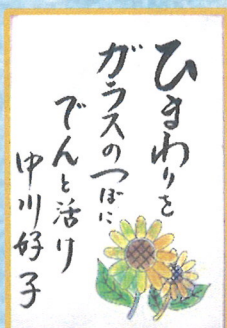 ひまわりを
ガラスのつぼに
でんと活け
中川好子